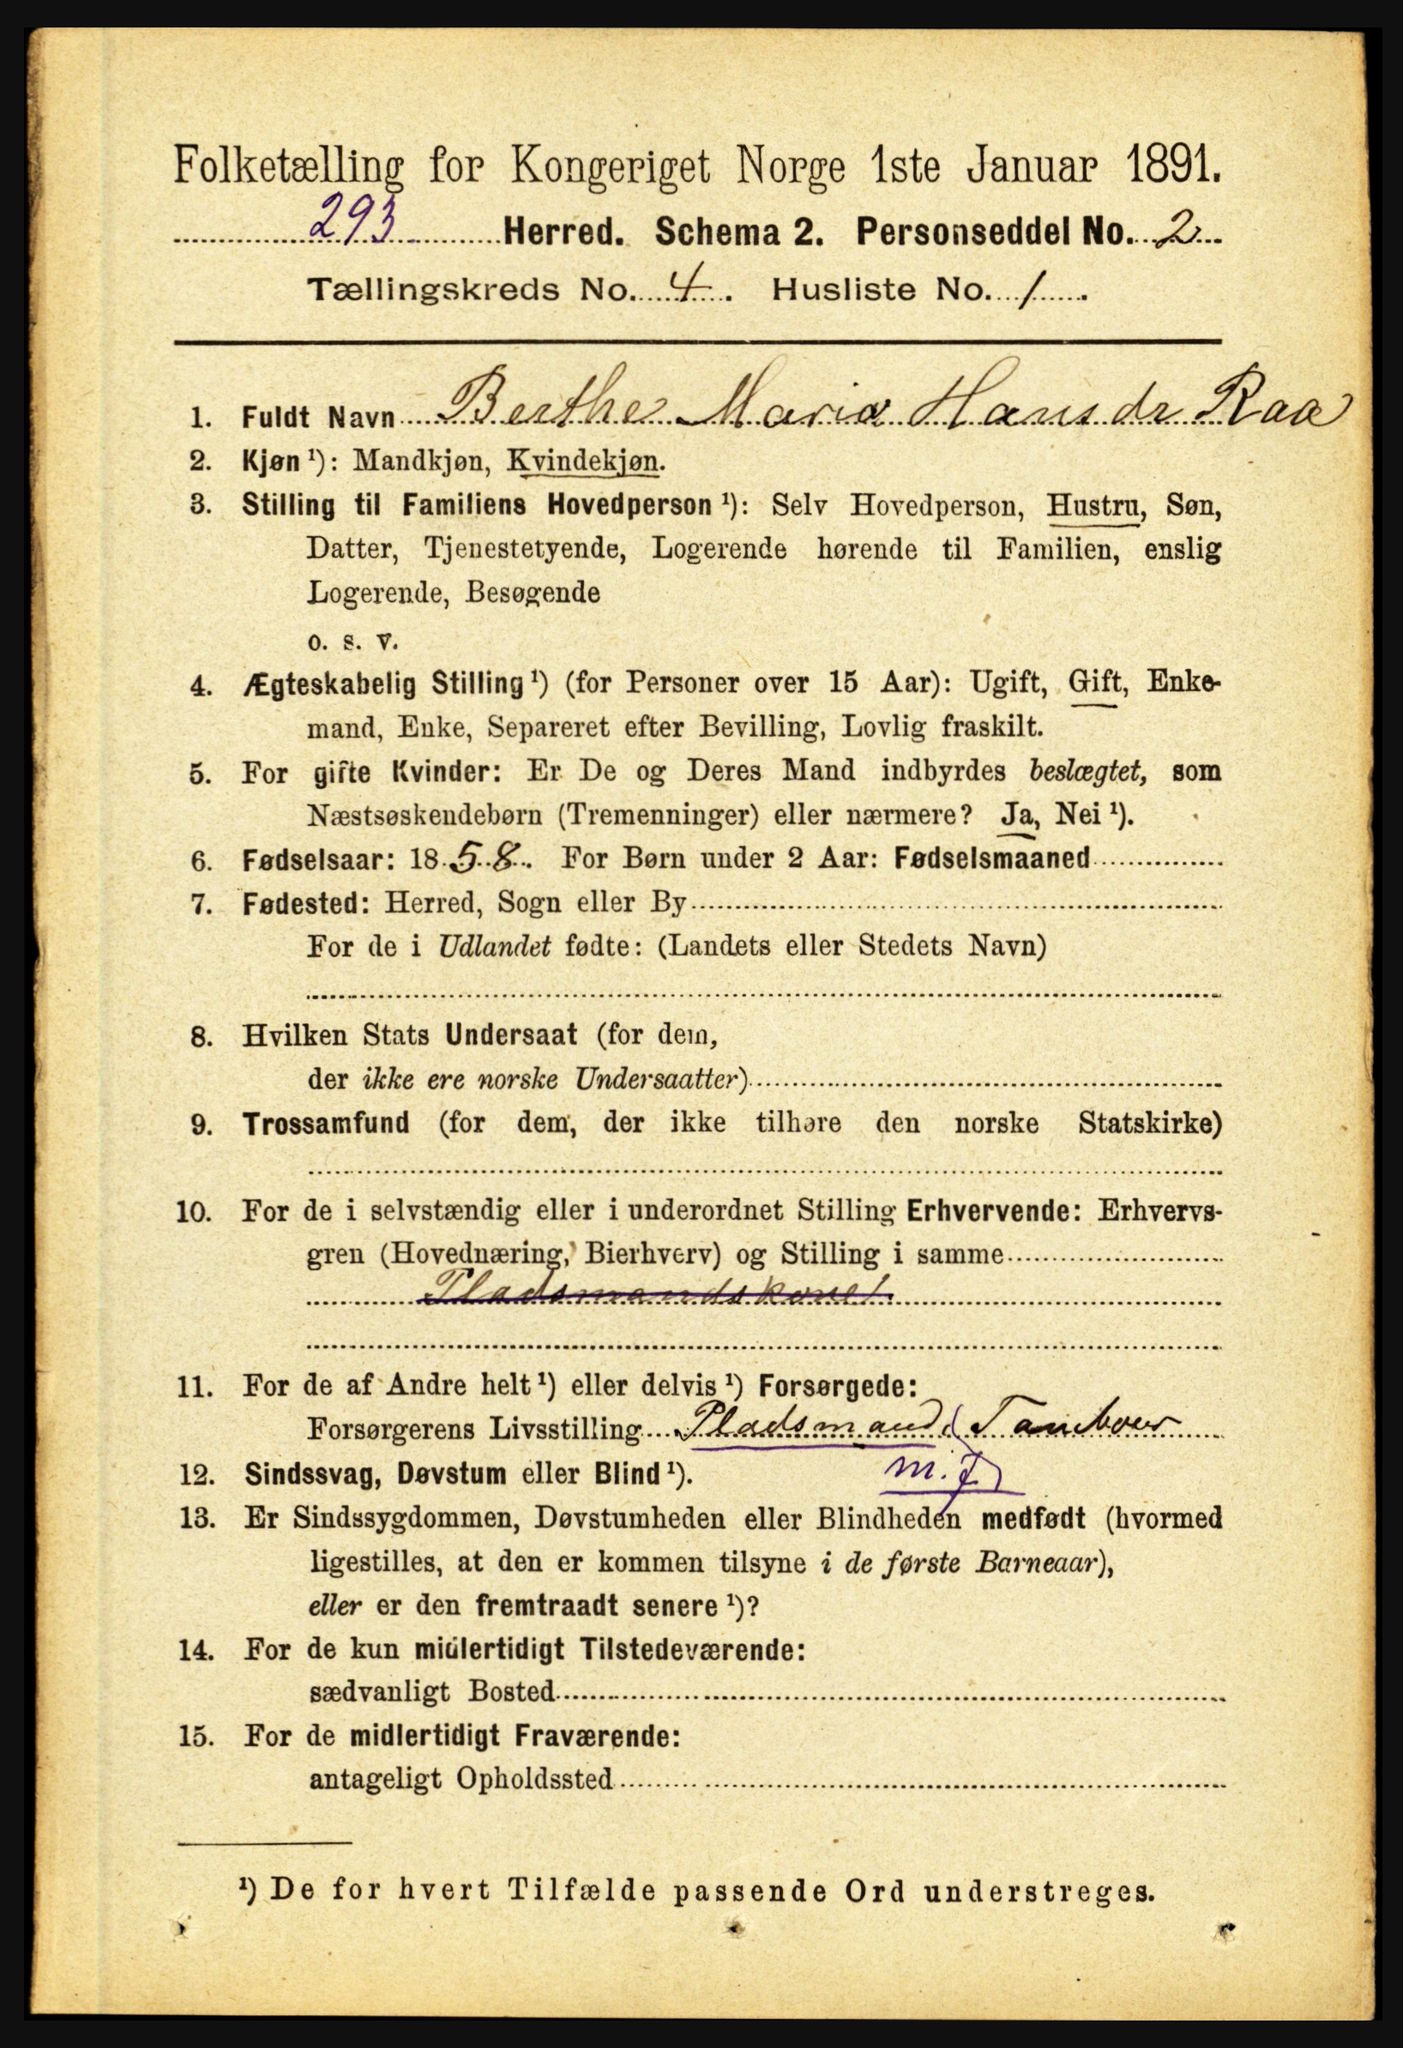 Folketælling for Kongeriget Norge 1ste Januar 1891.
293 Herred. Schema 2. Personseddel No. 2
Tællingskreds No. 4. Husliste No. 1.
1. Fuldt Navn Berthe Maria Hansdr Raa
2. Kjøn ¹): Mandkjøn, Kvindekjøn.
3. Stilling til Familiens Hovedperson ¹): Selv Hovedperson, Hustru, Søn,
Datter, Tjenestetyende, Logerende hørende til Familien, enslig
Logerende, Besøgende
o. s. v.
4. Ægteskabelig Stilling ¹) (for Personer over 15 Aar): Ugift, Gift, Enke-
mand, Enke, Separeret efter Bevilling, Lovlig fraskilt.
5. For gifte Kvinder: Er De og Deres Mand indbyrdes beslægtet, som
Næstsøskendebørn (Tremenninger) eller nærmere? Ja, Nei ¹).
6. Fødselsaar: 1858. For Børn under 2 Aar: Fødselsmaaned
7. Fødested: Herred, Sogn eller By
For de i Udlandet fødte: (Landets eller Stedets Navn)
8. Hvilken Stats Undersaat (for dem,
der ikke ere norske Undersaatter)
9. Trossamfund (for dem, der ikke tilhøre den norske Statskirke)
10. For de i selvstændig eller i underordnet Stilling Erhvervende: Erhvervs-
gren (Hovednæring, Bierhverv) og Stilling i samme
Pladsmandskone!
11. For de af Andre helt ¹) eller delvis ¹) Forsørgede:
Forsørgerens Livsstilling Pladsmand, Tambour
12. Sindssvag, Døvstum eller Blind ¹). m. J.
13. Er Sindssygdommen, Døvstumheden eller Blindheden medfødt (hvormed
ligestilles, at den er kommen tilsyne i de første Barneaar),
eller er den fremtraadt senere ¹)?
14. For de kun midlertidigt Tilstedeværende:
sædvanligt Bosted
15. For de midlertidigt Fraværende:
antageligt Opholdssted
¹) De for hvert Tilfælde passende Ord understreges.